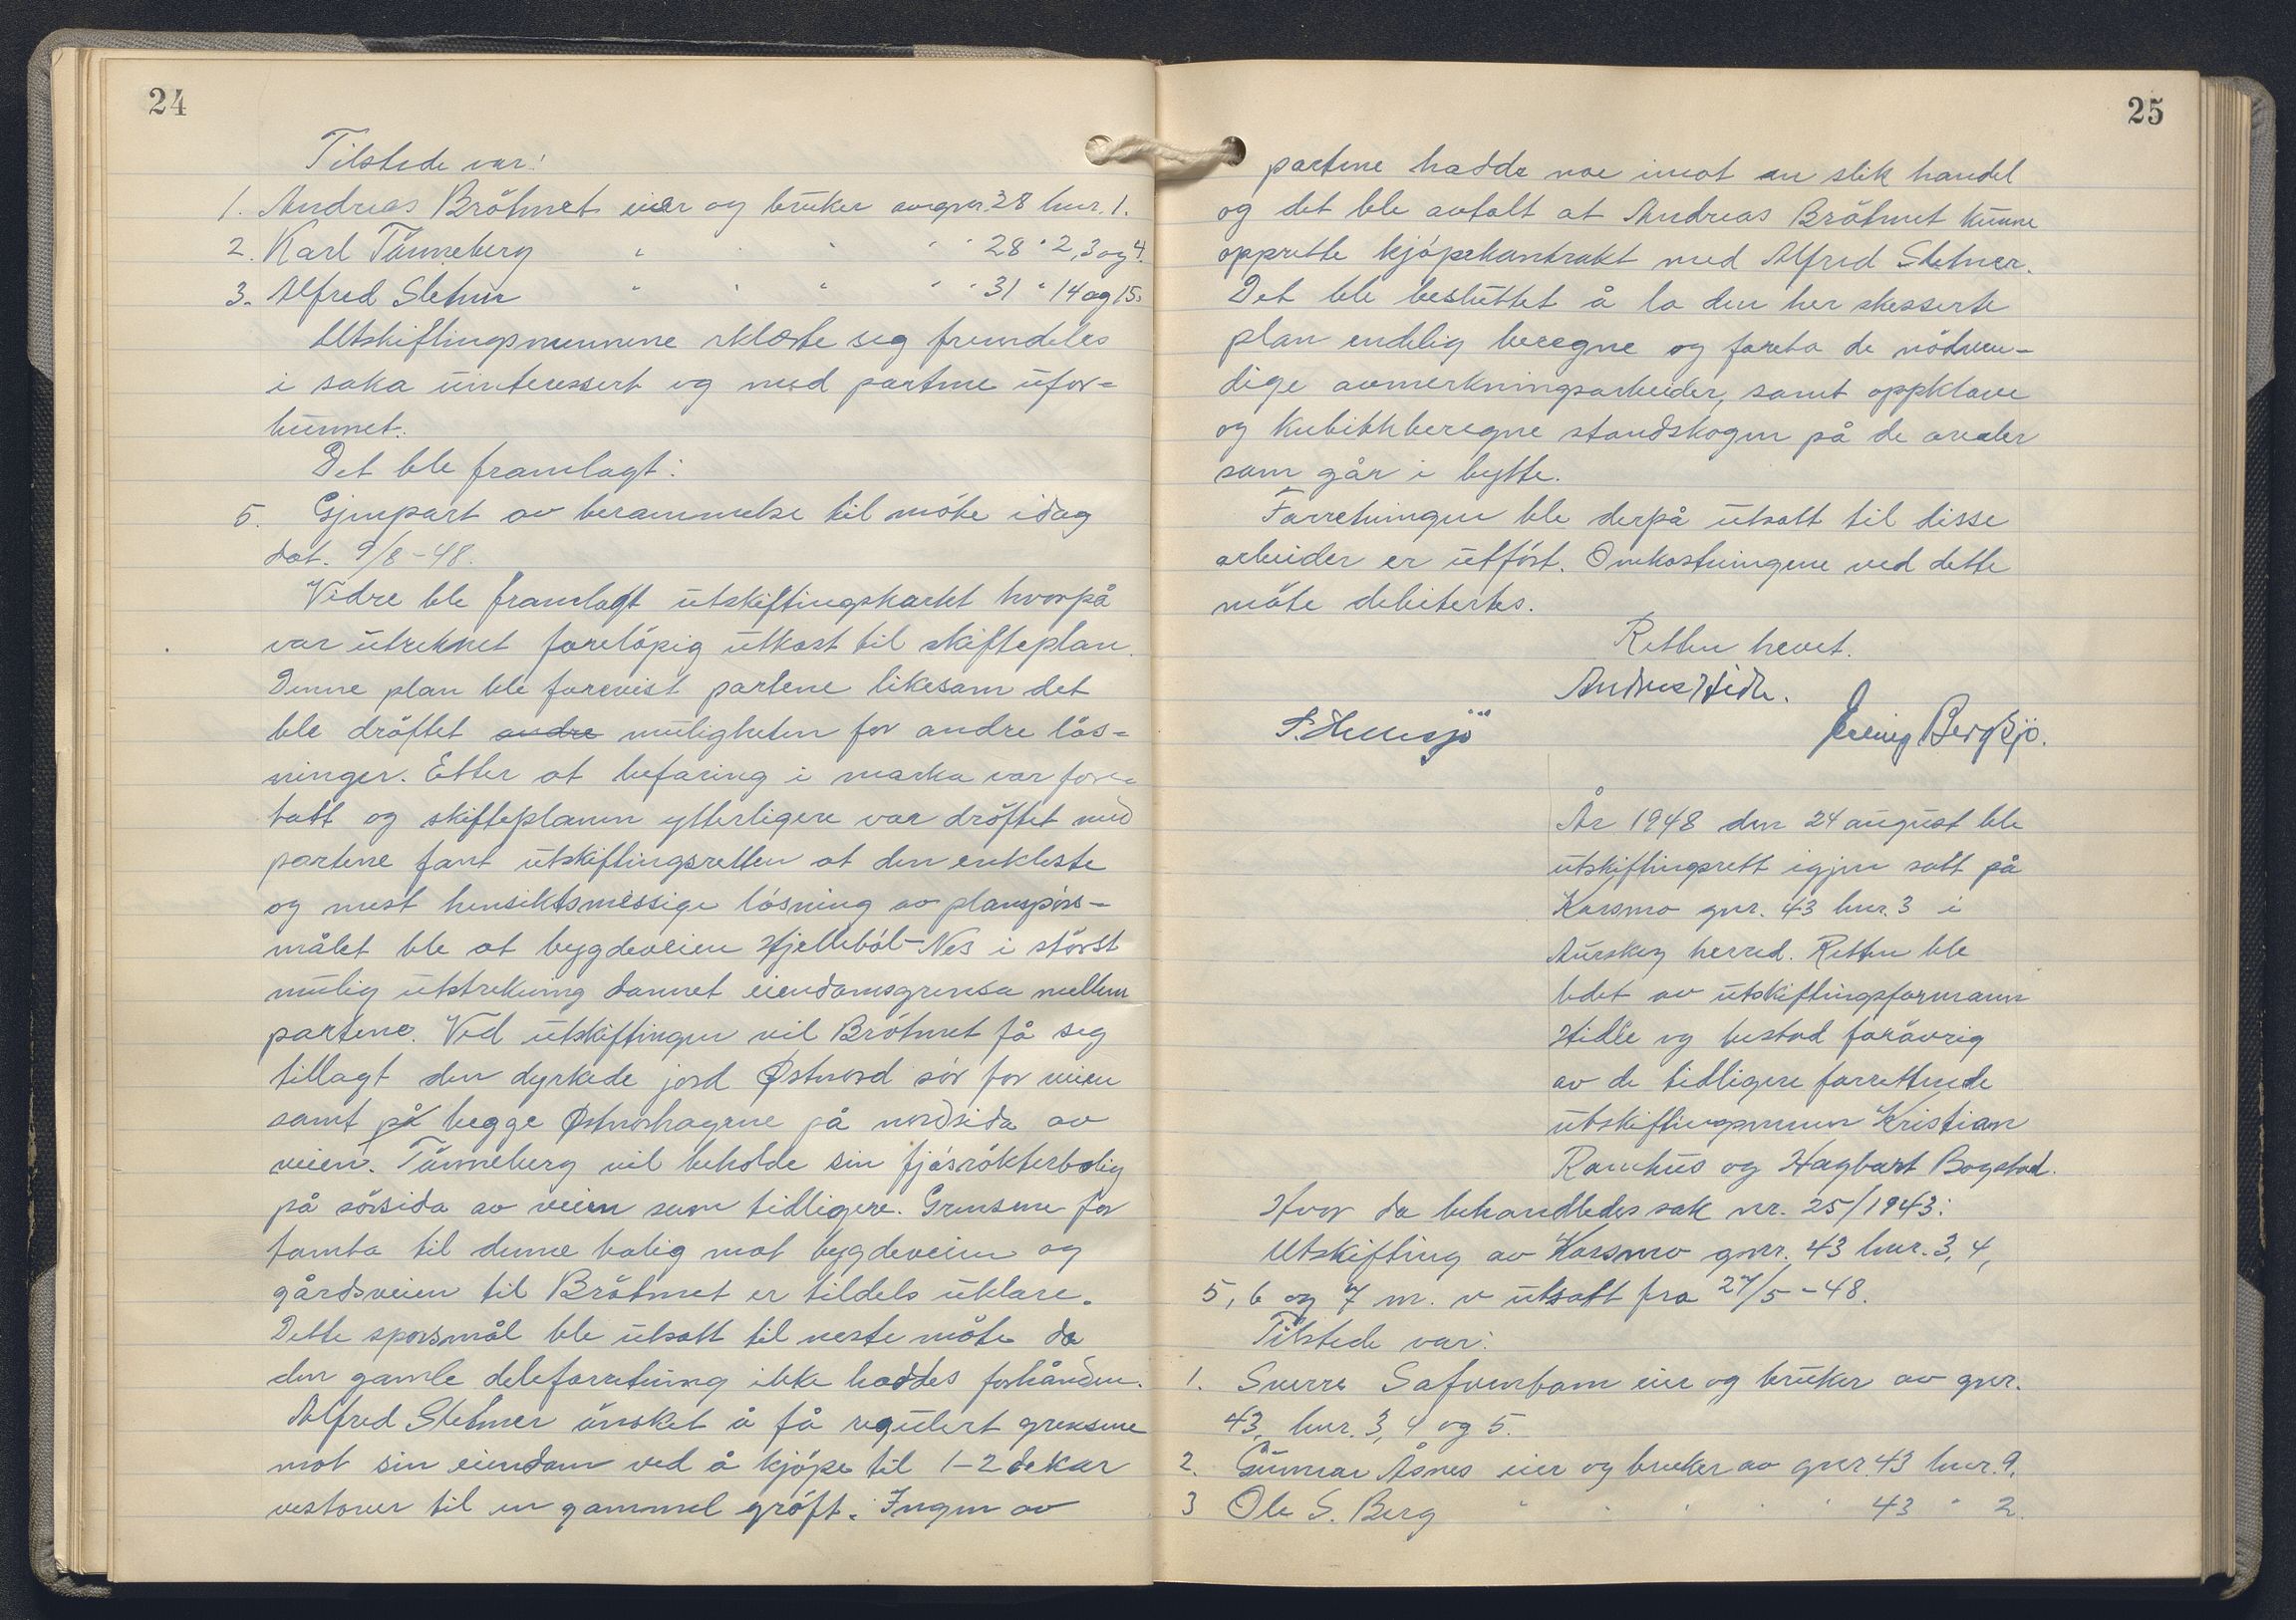 24
Tilstede var:
1. Andreas Bråtmet eier og bruker av gnr. 28 bnr. 1.
2. Karl Tånneberg " " " " " 28 " 2, 3 og 4.
3. Alfred Sletner " " " " " 31 " 14 og 15.
Utskiftingsmennene erklærte seg fremdeles
i saka uinteressert og med partene ufor-
bunnet.
Det ble framlagt:
5. Gjenpart av berammelse til möte idag
dat. 9/8-48.
Vidre ble framlagt utskiftingskartet hvorpå
var utreknet forelöpig utkast til skifteplan.
Denne plan ble forevist partene likesom det
ble dröftet andre muligheten for andre lös-
ninger. Etter at befaring i marka var fore-
tatt og skifteplanen ytterligere var dröftet med
partene fant utskiftingsretten at den enkleste
og mest hensiktsmessige lösning av planspörs-
målet ble at bygdeveien Hjelleböl-Nes i störst
mulig utstrekning dannet eiendomsgrensa mellem
partene. Ved utskiftingen vil Bråtmet få seg
tillagt den dyrkede jord Østnord sör for veien
samt på begge Østnorhagene på nordsida av
veien. Tånneberg vil beholde sin fjösrökterbolig
på sörsida av veien som tidligere. Grensene for
tomta til denne bolig mot bygdeveien og
gårdsveien til Bråtmet er tildels uklare.
Dette sporsmål ble utsatt til neste möte da
den gamle deleforretning ikke haddes forhånden.
Alfred Sletner önsket å få regulert grensene
mot sin eiendom ved å kjöpe til 1-2 dekar
vestover til en gammel gröft. Ingen av
25
partene hadde noe imot en slik handel
og det ble avtalt at Andreas Bråtmet kunne
opprette kjöpekontrakt med Alfred Sletner.
Det ble besluttet å la den her skesserte
plan endelig beregne og foreta de nödven-
dige avmerkningsarbeider, samt oppklave
og kubikkberegne standskogen på de arealer
som går i bytte.
Forretningen ble derpå utsatt til disse
arbeider er utfört. Omkostningene ved dette
möte debitertes.
Retten hevet.
Andres Hidle.
Bergsjö.
År 1948 den 24 august ble
utskiftingsrett igjen satt på
Korsmo gnr. 43 bnr. 3 i
Aurskog herred. Retten ble
ledet av utskiftingsformann
Hidle og bestod forövrig
av de tidligere forrettende
utskiftingsmenn Kristian
Ramhus og Hagbart Bogstad.
Hvor da behandledes sak nr. 25/1943:
Utskifting av Korsmo gnr. 43 bnr. 3, 4,
5, 6 og 7 m. v utsatt fra 27/5-48.
Tilstede var:
1. Sverre Safvenbom eier og bruker av gnr.
43, bnr. 3, 4 og 5.
2. Gunnar Åsnes eier og bruker av gnr. 43 bnr. 9.
3 Ole S. Berg " " " " " 43 " 2.